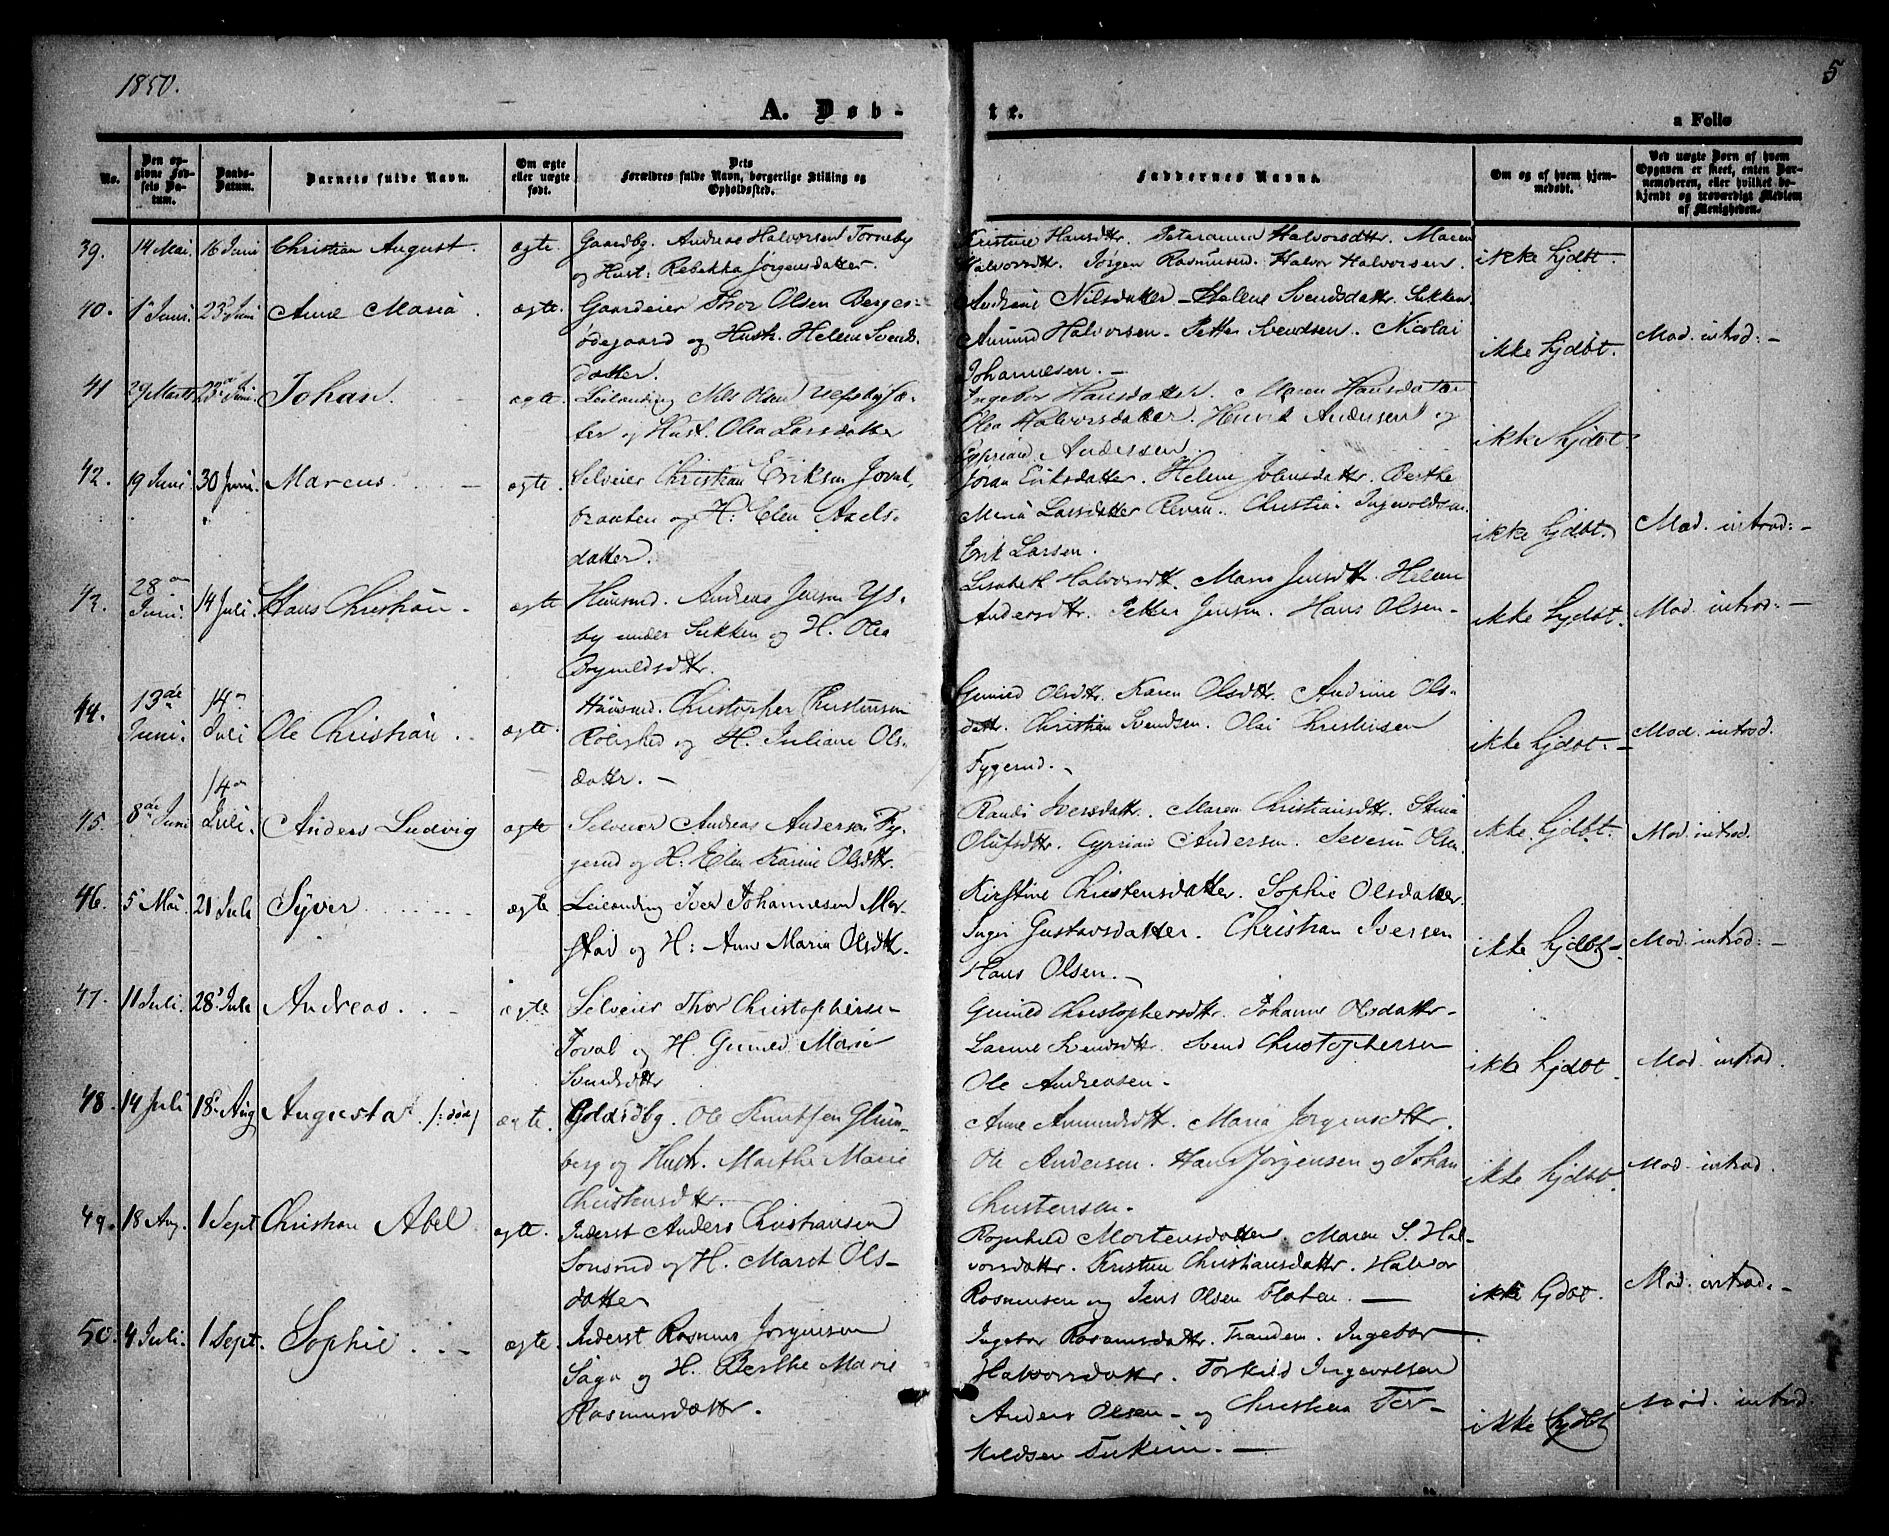 1850.
5
A. Døb-
te.
a Folio
No.
Den op-
givne Fød-
sels Da-
tum.
Daabs-
Datum.
Barnets fulde Navn.
Om ægte
eller uægte
født.
Dets
Forældres fulde Navn, borgerlige Stilling og
Opholdssted.
Faddernes Navne.
Om og af hvem hjem-
medøbt.
Ved uægte Børn af hvem
Opgaven er skeet, enten Bar-
nemoderen, eller hvilket be-
kjendt og troværdigt Medlem
af Menigheden.
39. 14 Mai. 16 Juni Christian August. ægte. Gaardbg. Andreas Halvorsen Torneby
og Hust: Rebekka Jørgensdatter.
Kristine Hansdtr. Halvorsdttr. Maren
Halvorsdtr. Jørgen Rasmusen. Halvor Halvorsen.
ikke hjdøbt.
40. 1 Juni. 23 Juni Anne Maria. ægte. Gaardeier Thor Olsen Berges-
ødegaard og Hustr. Helene Svends-
datter.
Andrine Nilsdatter - Helene Svendsdattr. Sukken.
Amund Halvorsen. Petter Svendsen. Nicolai
Johannesen. -
ikke hjdøbt. Mod. introd: -
41 29 Marts 23 Juni. Johan. ægte. Leilænding Nils Olsen
og Hust. Olea Larsdatter
Ingebor Hansdatter. Maren Hansdatter
Olea Halvorsdatter. Henrik Andersen og
Cyprian Andersen.
ikke hjdøbt.
42. 19 Juni 30 Juni. Marcus. - ægte. Selveier Christian Eriksen Joval-
braaten og H: Elen Axels-
datter.
Jøran Eriksdatter. Helene Johnsdatter. Berthe
Maria Larsdatter Revau. Christian Ingevoldsen
Erik Larsen.
ikke hjdøbt. Mod. introd: -
43. 28 Juni. 14 Juli. Hans Christian. ægte Huusmd. Andreas Jensen Ys-
by under Sukken og H. Olea
Brynildsdtr.
Lisabeth Halvorsdt. Maria Jensdtr. Helene
Andersdttr. Petter Jensen. Hans Olsen -
ikke hjdøbt. Mod. introd: -
44. 13de Juni. 14 Juli Ole Christian. ægte. Huusmd. Christopher Christensen
Rolighed og H. Juliane Ols-
dattr. -
Gunild Olsdttr. Karen Olsdtr. Andrine Ols-
dtr. Christian Svendsen. Olai Christensen
Fygerud. -
ikke hjdøbt. - Mod. introd.
45. 8de Juni 14 Juli. Anders Ludvig ægte Selveier Andreas Andersen Fy-
gerud og H: Elen Karine Olsdttr.
Randi Iversdattr. Maren Christiansdtr. Stina
Olufsdttr. Cyprian Andersen. Severin Olsen.
ikke hjdøbt. Mod. introd.
46. 5 Mai. 21 Juli Syver ægte. Leilænding Iver Johannesen Mør-
stad og H: Anne Maria Olsdtr.
Kirstine Christensdatter. Sophie Olsdatter.
Inger Gustavsdatter. Christian Iversen
Hans Olsen. -
ikke hjdøbt - Mod. introd: -
47. 11 Juli. 28 Juli Andreas. - ægte. Selveier Thor Christophersen -
Joval og H. Gunild Marie
Svendsdttr
Gunild Christophersdtr. Johanne Olsdatter -
Svendsdtr. Svend Christophersen
Ole Andreasen -
ikke hjdøbt Mod. introd.
48. 14 Juli 18 Aug Augusta /: død/ ægte. Goldsdbg. Ole Knutsen Glum-
berg og Hustr. Marthe Marie
Christensdtr.
Anne Amundsdtr. Maria Jørgensdtr.
Ole Andersen. Hans Jørgensen og Johan
Christensen.
ikke hjdøbt. Mod. introd.
49. 18 Aug. 1 Sept Christian Abel. ægte. Inderst Anders Christiansen
Sonsrud og H. Maret Ols-
datter
Ragnhild Mortensdatter. Maren S. Hal-
vorsdattr. Kristine Christiansdattr. Halvor
Rasmusen og Jens Olsen Flaten. -
ikke hjdøbt. Mod. introd: -
50. 4 Juli. 1 Sept. Sophie. - ægte. Inderst Rasmus Jørgensen
Saga og H. Berthe Marie
Rasmusdatter.
Ingebor Rasmusdattr. Tranden. Ingebor
Halvorsdattr. Torkild Ingevalsen
Anders Olsen - og Christian Tor-
kildsen -
ikke hjdøbt Mod. introd.